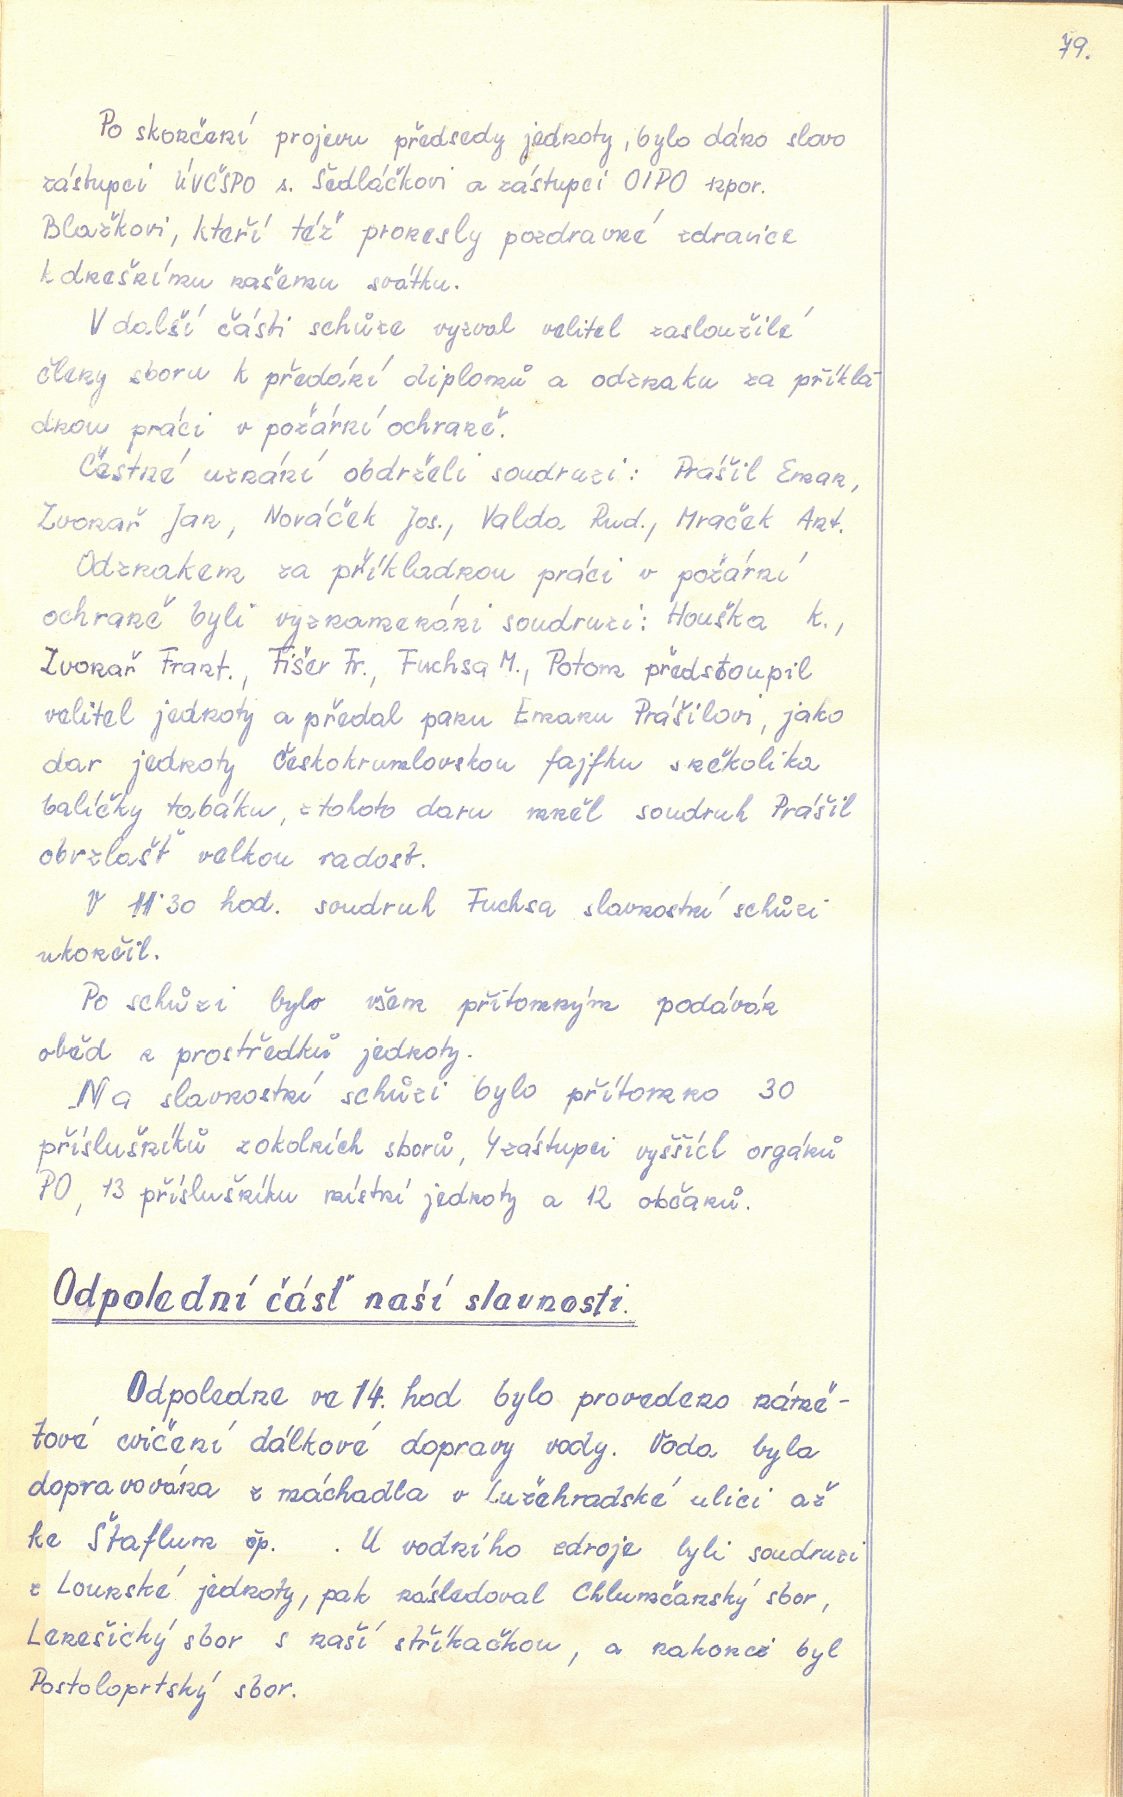 79.
Po skončení projevu předsedy jednoty, bylo dáno slovo
zástupci ÚVČSPO s. Sedláčkovi a zástupci OIPO npor.
Blažkovi, kteří též pronesly pozdravné zdravice
k dnešnímu našemu svátku.
V další části schůze vyzval velitel zasloužilé
členy sboru k předání diplomů a odznaku za příkla-
dnou práci v požární ochraně.
Čestné uznání obdrželi soudruzi: Prášil Eman,
Zvonař Jan, Nováček Jos., Valda Rud., Mraček Ant.
Odznakem za příkladnou práci v požární
ochraně byli vyznamenáni soudruzi: Houška K.,
Zvonař Frant., Fišer Fr., Fuchsa M., Potom předstoupil
velitel jednoty a předal panu Emanu Prášilovi, jako
dar jednoty českokrumlovskou fajfku s několika
balíčky tabáku, z tohoto daru měl soudruh Prášil
obvzlašť velkou radost.
V 11·30 hod. soudruh Fuchsa slavnostní schůzi
ukončil.
Po schůzi bylo všem přítomným podáván
oběd z prostředků jednoty.
Na slavnostní schůzi bylo přítomno 30
příslušníků z okolních sborů, 4 zástupci vyšších orgánů
PO, 13 příslušníku místní jednoty a 12 občanů.
Odpolední část naší slavnosti.
Odpoledne ve 14. hod bylo provedeno námě-
tové cvičení dálkové dopravy vody. Voda byla
dopravována z máchadla v Lužehradské ulici až
ke Štaflum čp. . U vodního zdroje byli soudruzi
z Lounské jednoty, pak následoval Chlumčanský sbor,
Lenešický sbor s naší stříkačkou, a nakonec byl
Postoloprtský sbor.